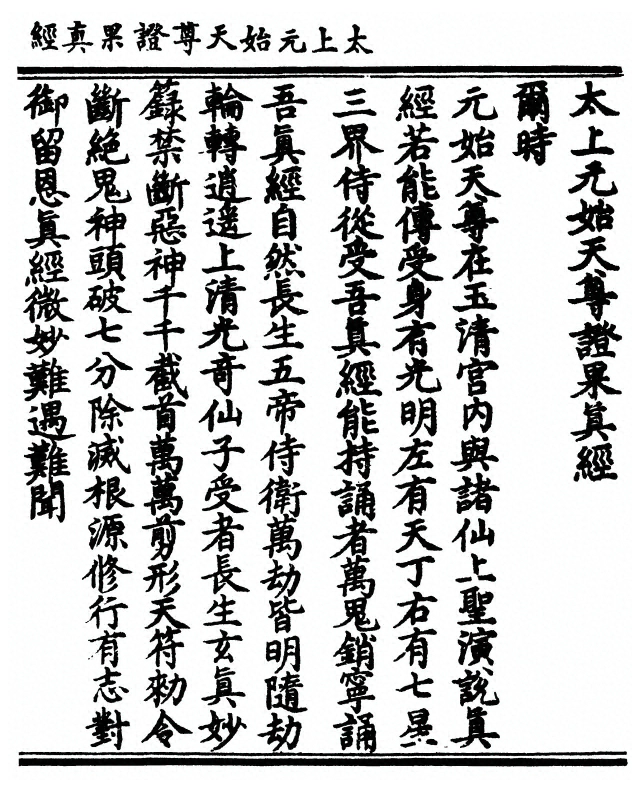 太上元始天尊證果真經
太上元始天尊證果眞經
爾時
元始天尊在玉清宮内與諸仙上聖演說眞
經若能傳受身有光明左有天丁右有七星
三界侍從受吾眞經能持誦者萬鬼銷寧誦
吾眞經自然長生五帝侍衛萬劫皆明隨劫
輪轉逍遥上清光奇仙子受者長生玄眞妙
籙禁斷惡神千千截首萬萬剪形天符勑令
斷絶鬼神頭破七分除滅根源修行有志對
御留恩眞經微妙難遇難聞